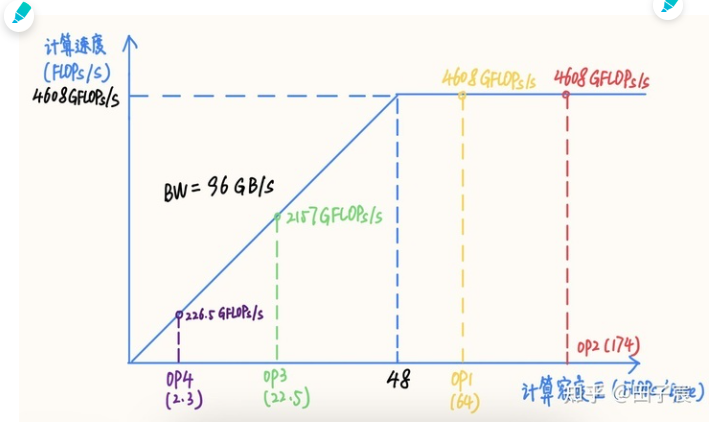 计算速度
(FLOPs/s)
4608GFLOPs/s
4608GFLOPs/s
4608GFLOPs/s
BW = 96 GB/s
2157GFLOPs/s
226.5 GFLOPs/s
OP2 (174)
OP4
(2.3)
OP3
(22.5)
48
OP1
(64)
计算密度
知乎 @田子宸